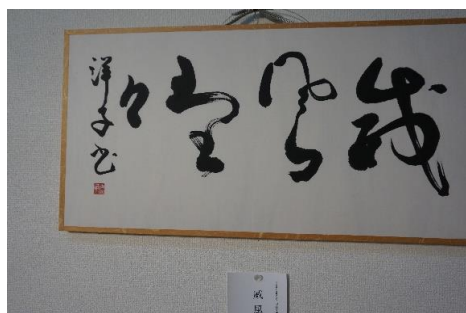 威風堂々
洋子書
威風